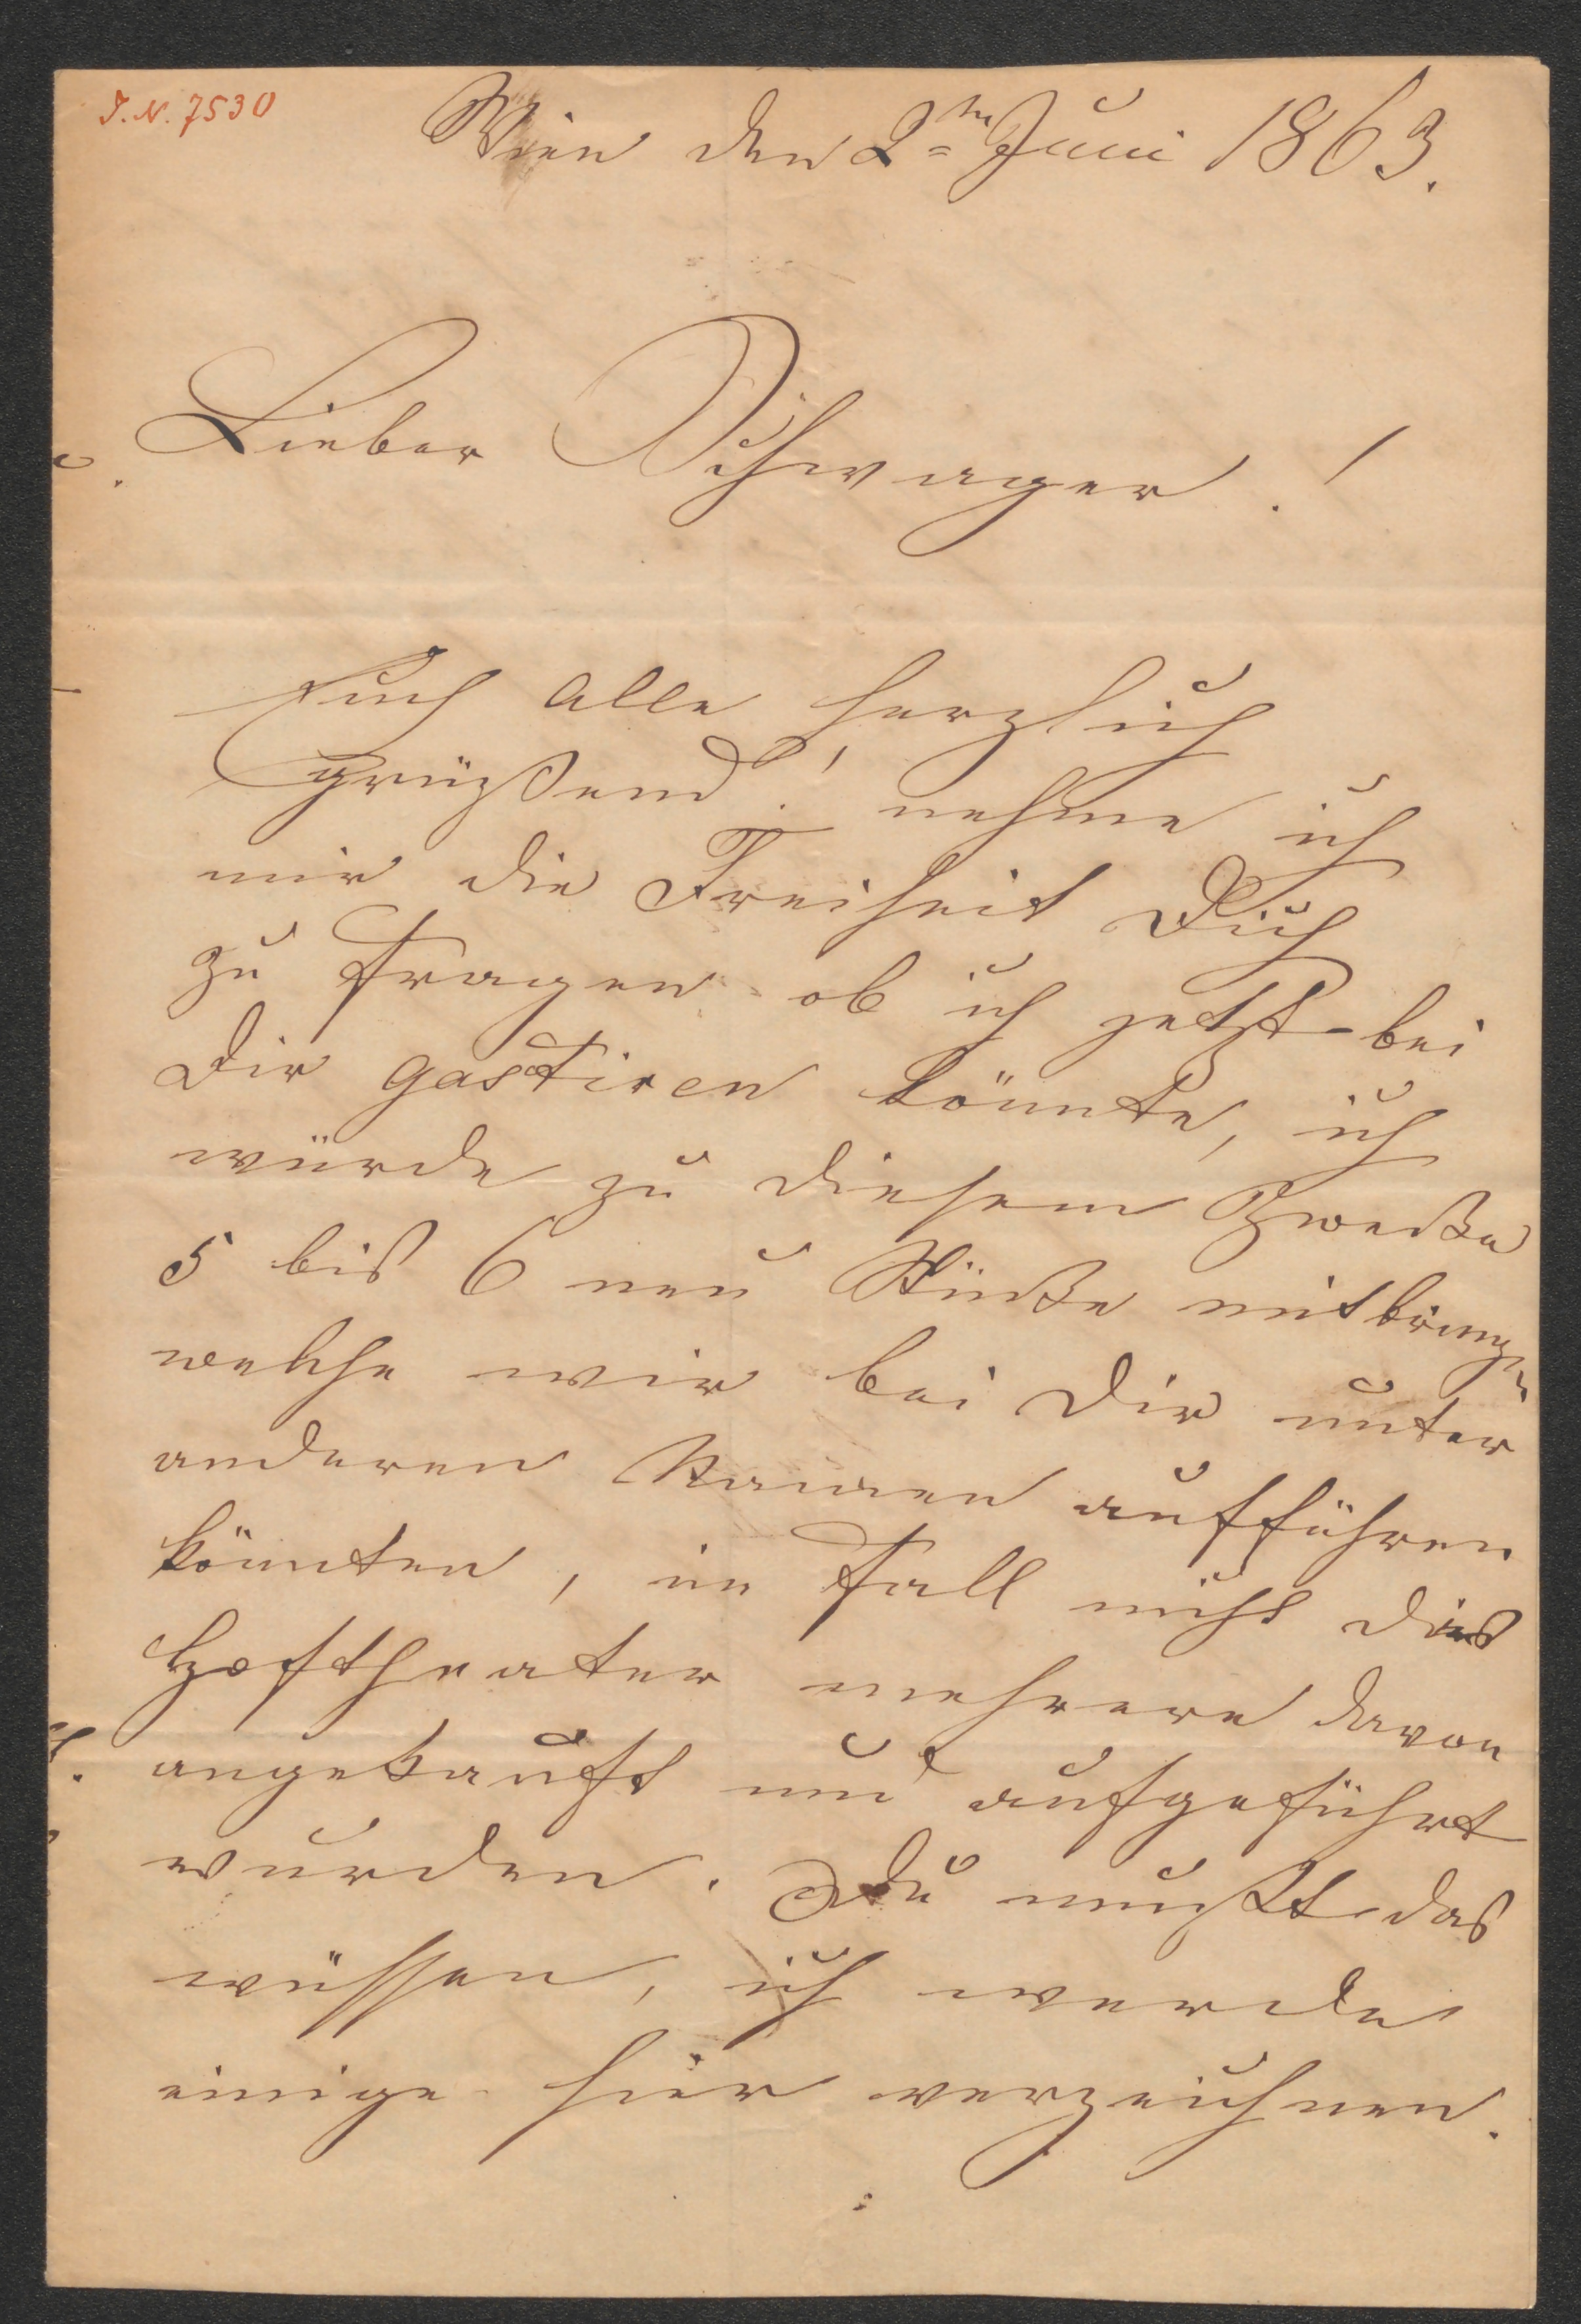 J. N. 7530
Wien den 2ten Juni 1863.
Lieber Schwager!
Euch Alle herzlich
grüßend! nehme ich
mir die Freiheit Dich
zu fragen ob ich jetzt bei
Dir gastiren könnte, ich
würde zu diesem Zwecke
5 bis 6 neu Stücke mitbringen
welche wir bei Dir unter
anderen Namen aufführen
könnten, im Fall nicht das
Hoftheater mehrere davon
angekauft und aufgeführt
wurden. Du mußt das
wüssen, ich werde
einige hier verzeichnen.